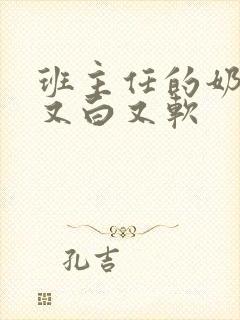 班主任的奶
又白又软
孔吉